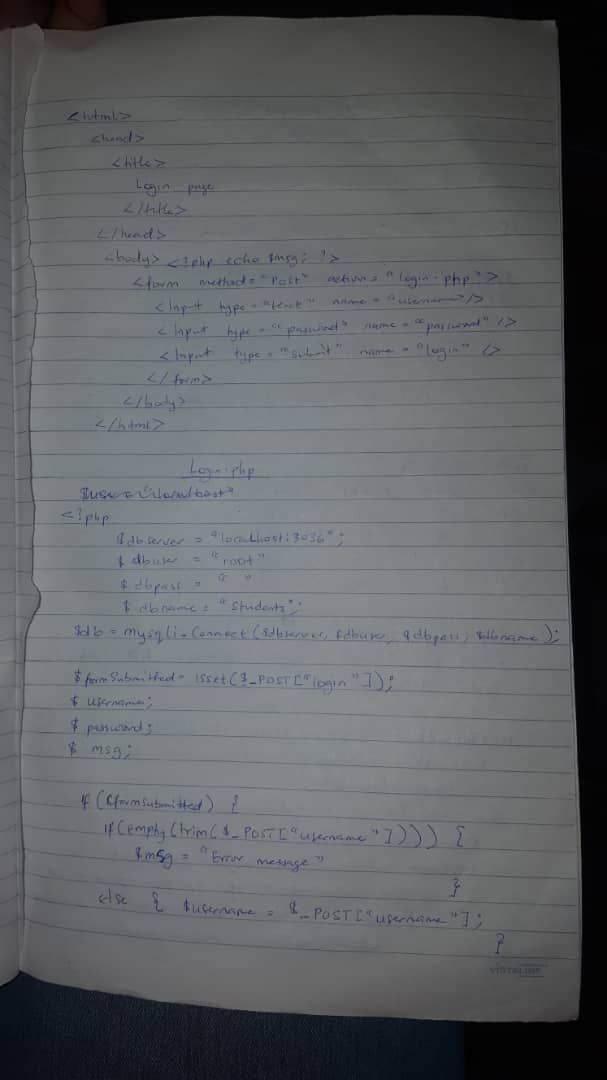 <html>
<head>
<title>
Login page
</title>
</head>
<body> <?php echo $msg; ?>
<form method="Post" action="login.php">
<Input type="text" name="username"/>
<Input type="password" name="password" />
<Input type="submit" name="login" />
</form>
</body>
</html>
Login.php
"localhost"
<?php
$dbserver = "localhost:3036";
$dbuser = "root"
$dbpass = " "
$dbname = "Students";
$db = mysqli_Connect($dbserver, $dbuser, $dbpass, $dbname);
$formSubmitted = isset($_POST["login"]);
$ username;
$ password;
$ msg;
If ($formsubmitted) {
If(empty(trim($_POST["username"]))) {
$msg = "Error message"
}
else { $username = $_POST["username"];
}